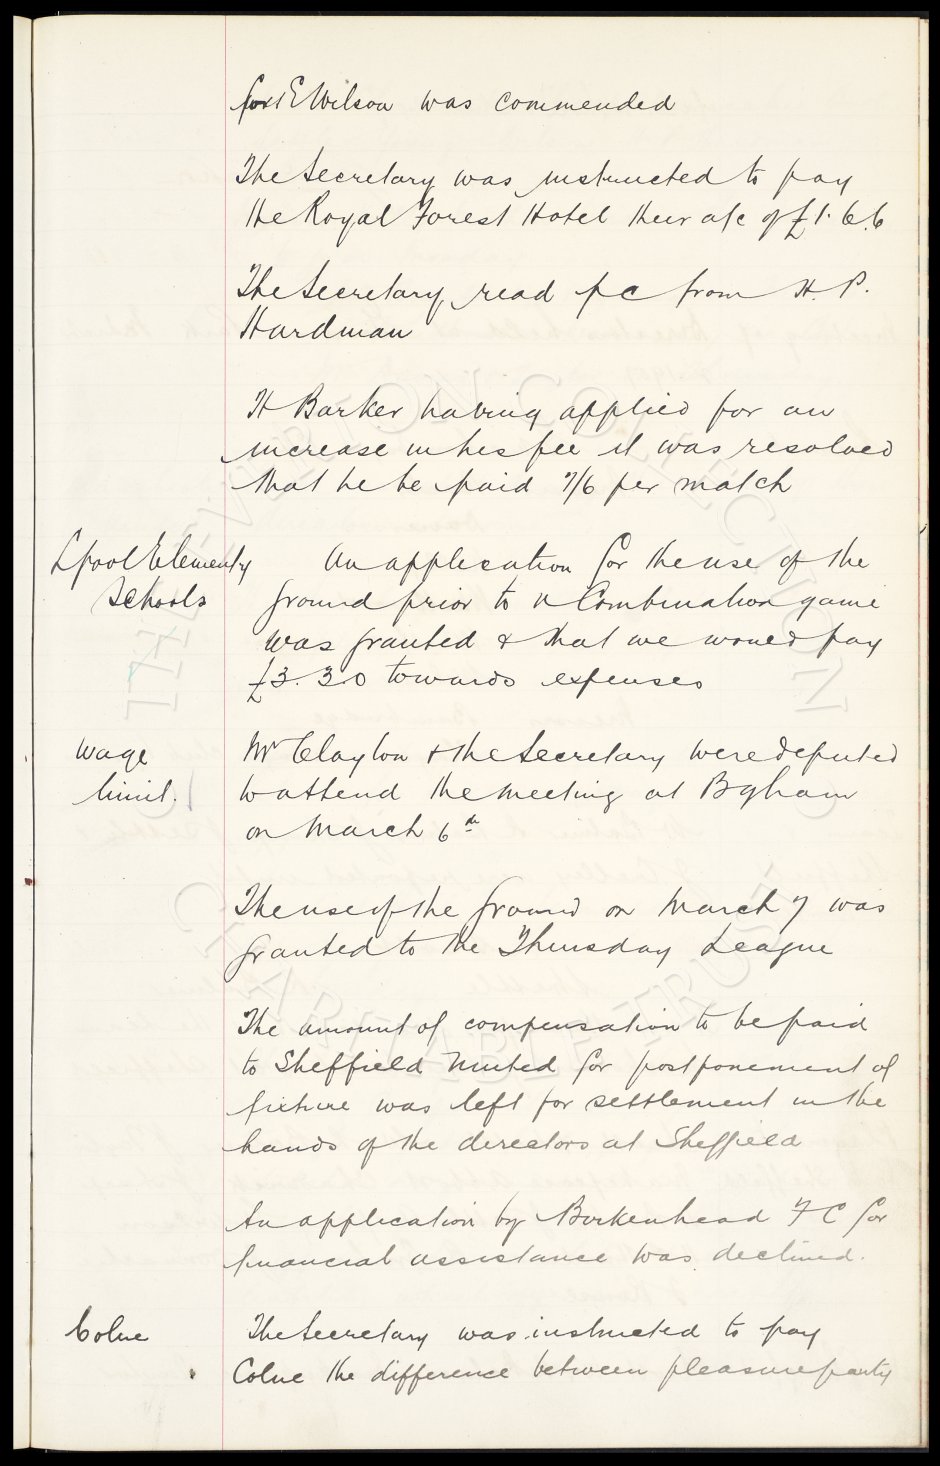 for E Wilson was commended
The Secretary was instructed to pay
the Royal Forest Hotel their a/c of £1. 6. 6
The Secretary read pc from H. P.
Hardman
H Barker having applied for an
increase in his fee it was resolved
that he be paid 7/6 per match
Lpool Elementy
Schools
An application for the use of the
ground prior to a Combination game
was granted & that we would pay
£3. 3. 0 towards expenses
Wage
limit.
Mr Clayton & the Secretary were deputed
to attend the meeting at Bgham
on March 6th
The use of the ground on March 7 was
granted to the Thursday League
The amount of compensation to be paid
to Sheffield United for postponement of
fixture was left for settlement in the
hands of the directors at Sheffield
An application by Birkenhead F C for
financial assistance was declined.
Colne
The Secretary was instructed to pay
Colne the difference between pleasure party
EVERTON COLLECTION
CHARITABLE TRUST